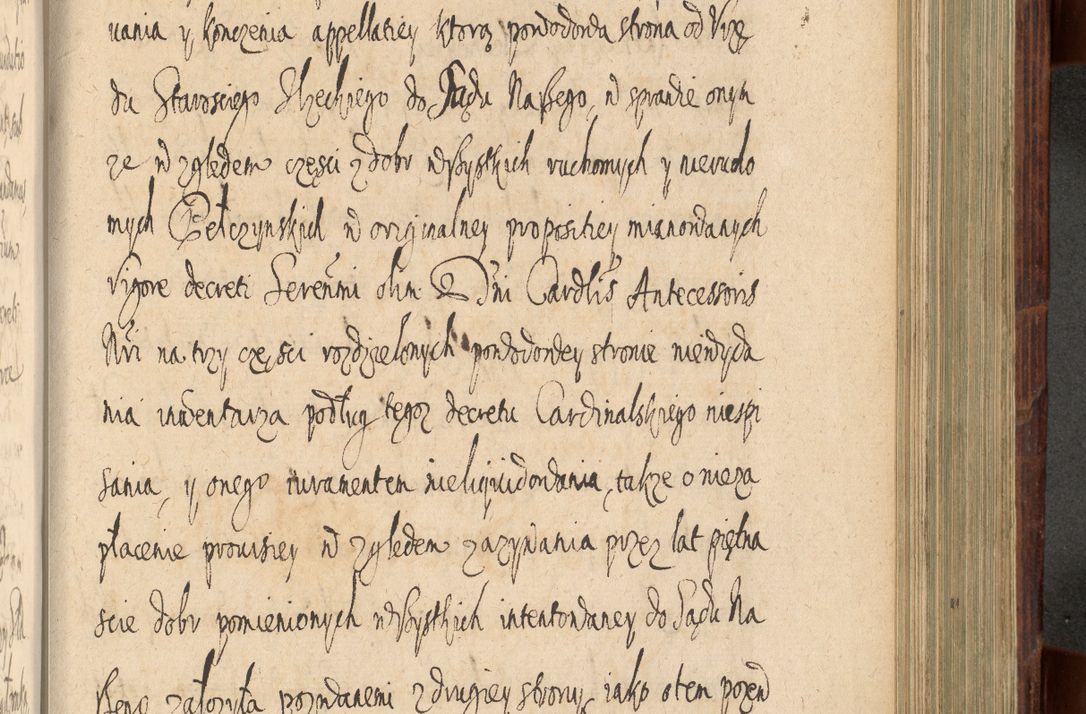 uania y konczenia appellatiey ktorą powodowa strona od Vrzę
du Starosciego Ilzeckiego do Sądu Naszego, w sprawie onym
ze w zględem częsci z dobr wszystkich ruchomych y nierucho
mych Pełczynskich w originalney propositiey mianowanych
vigore decreti Serenmi olim Dni Cardlis Antecessoris
Nri na trzy częsci rozdzielonych powodowey stronie niewyda
nia inwentarza podług tegoz decretu Cardinalskiego niespi
sania, y onego iuramentem nieliquidowania, także o nieza
płacenie prowisiey w zględem zazywania przez lat piętna
scie dobr pomienionych wszystkich intentowaney do Sądu Na
szego założyła pozwanemi z drugiey strony iako o tem pozew